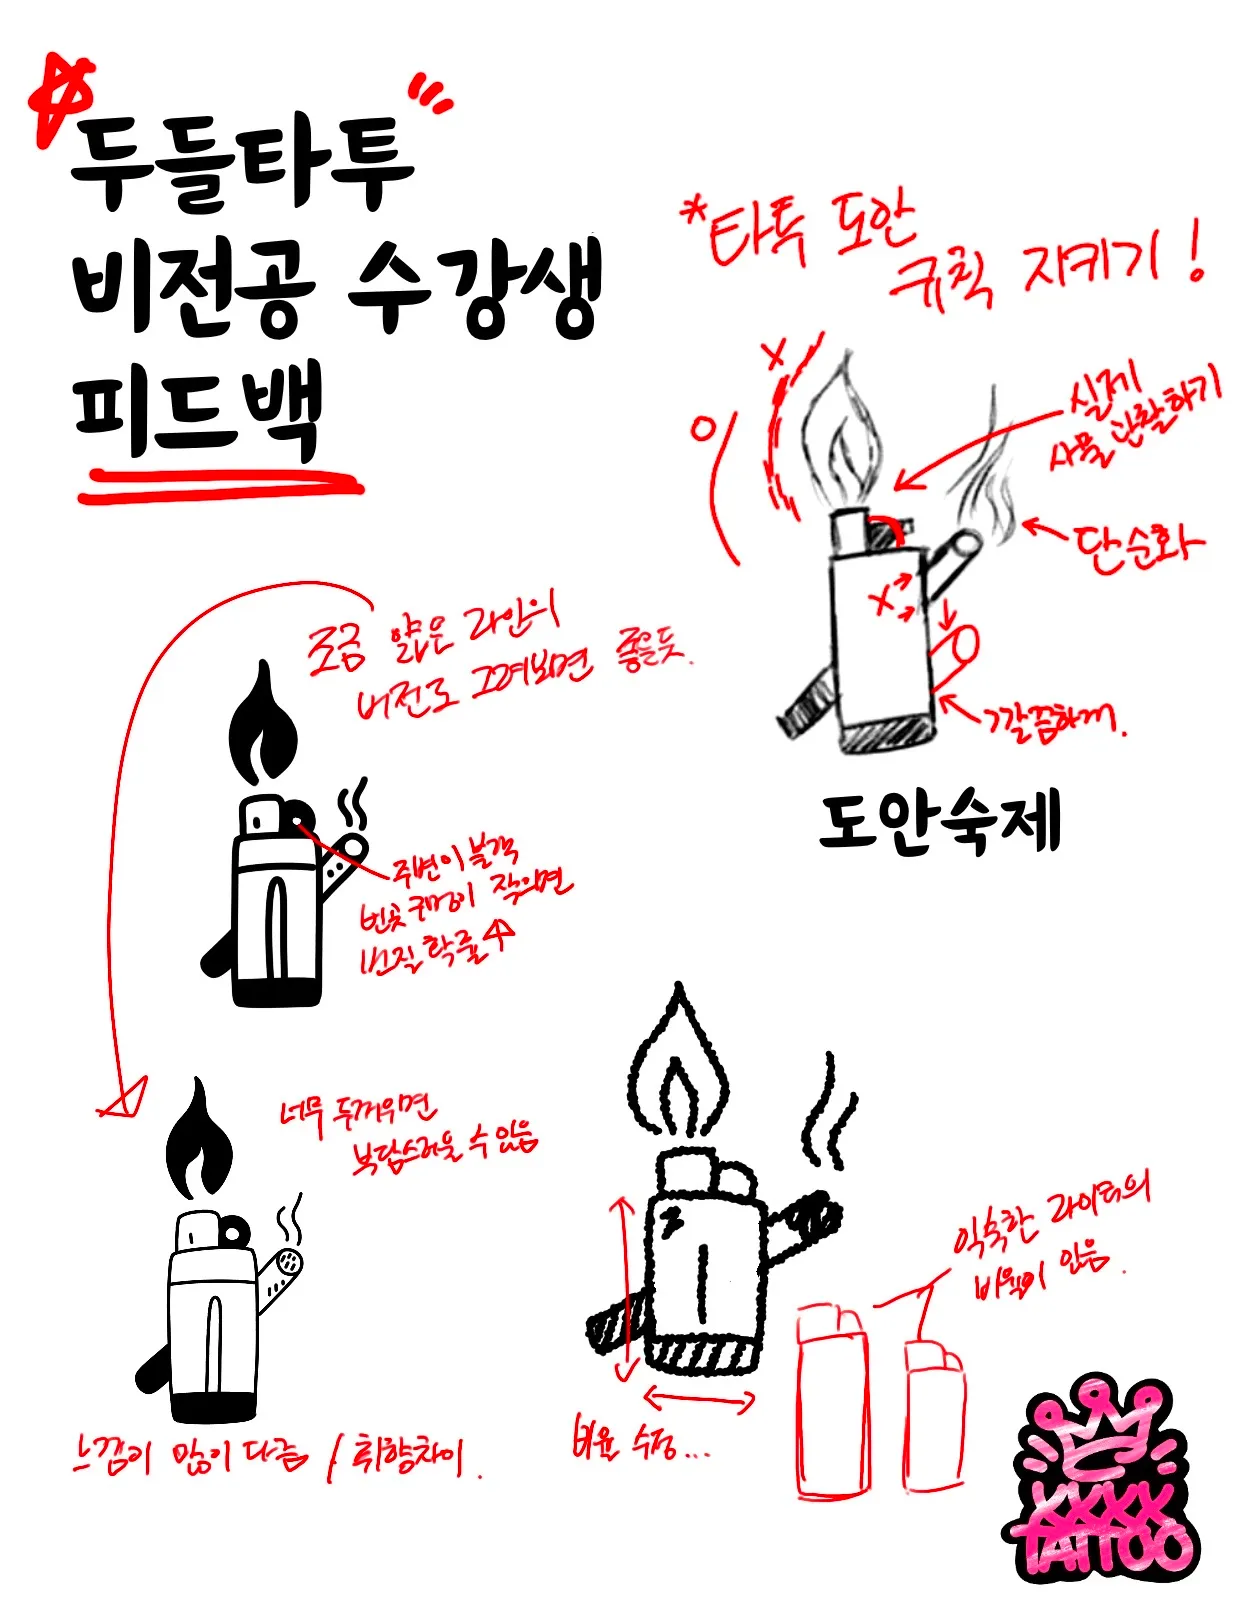 두들타투
비전공 수강생
피드백
*타투 도안
규칙 지키기!
X
O
실제
사물 관찰하기
단순화
X
깔끔하게.
도안숙제
조금 얇은 라인의
버전로 그려보면 좋을듯.
주변이 블랙
빈곳 구멍이 작으면
번질 확률↑
너무 두꺼우면
부담스러울 수 있음
느낌이 많이 다름 / 취향차이.
비율 수정...
익숙한 라이터의
비율이 있음.
XXXX
TATTOO